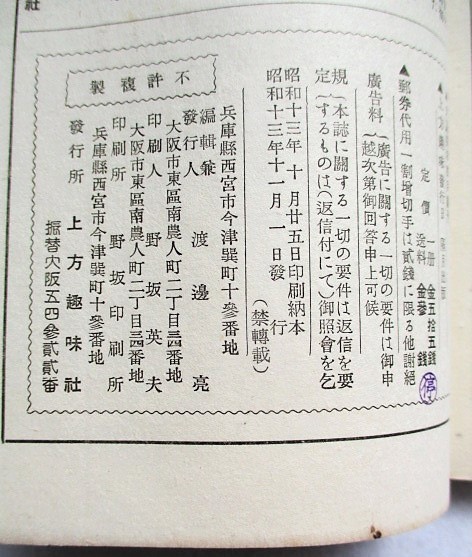 定價 一册 金五拾五錢
送料 金參錢
停
▲郵券代用一割增切手は貳錢に限る他謝絕
廣告料
廣告に關する一切の要件は御申
越次第御回答申上可候
規定
本誌に關する一切の要件は返信を要
するものは(返信付にて)御照會を乞
昭和十三年十月廿五日印刷納本
昭和十三年十一月一日發行
(禁轉載)
不許複製
兵庫縣西宮市今津巽町十參番地
編輯兼發行人 渡邊亮
大阪市東區南農人町二丁目三四番地
印刷人 野坂英夫
大阪市東區南農人町二丁目三四番地
印刷所 野坂印刷所
兵庫縣西宮市今津巽町十參番地
發行所 上方趣味社
振替大阪五四參貳貳番
社